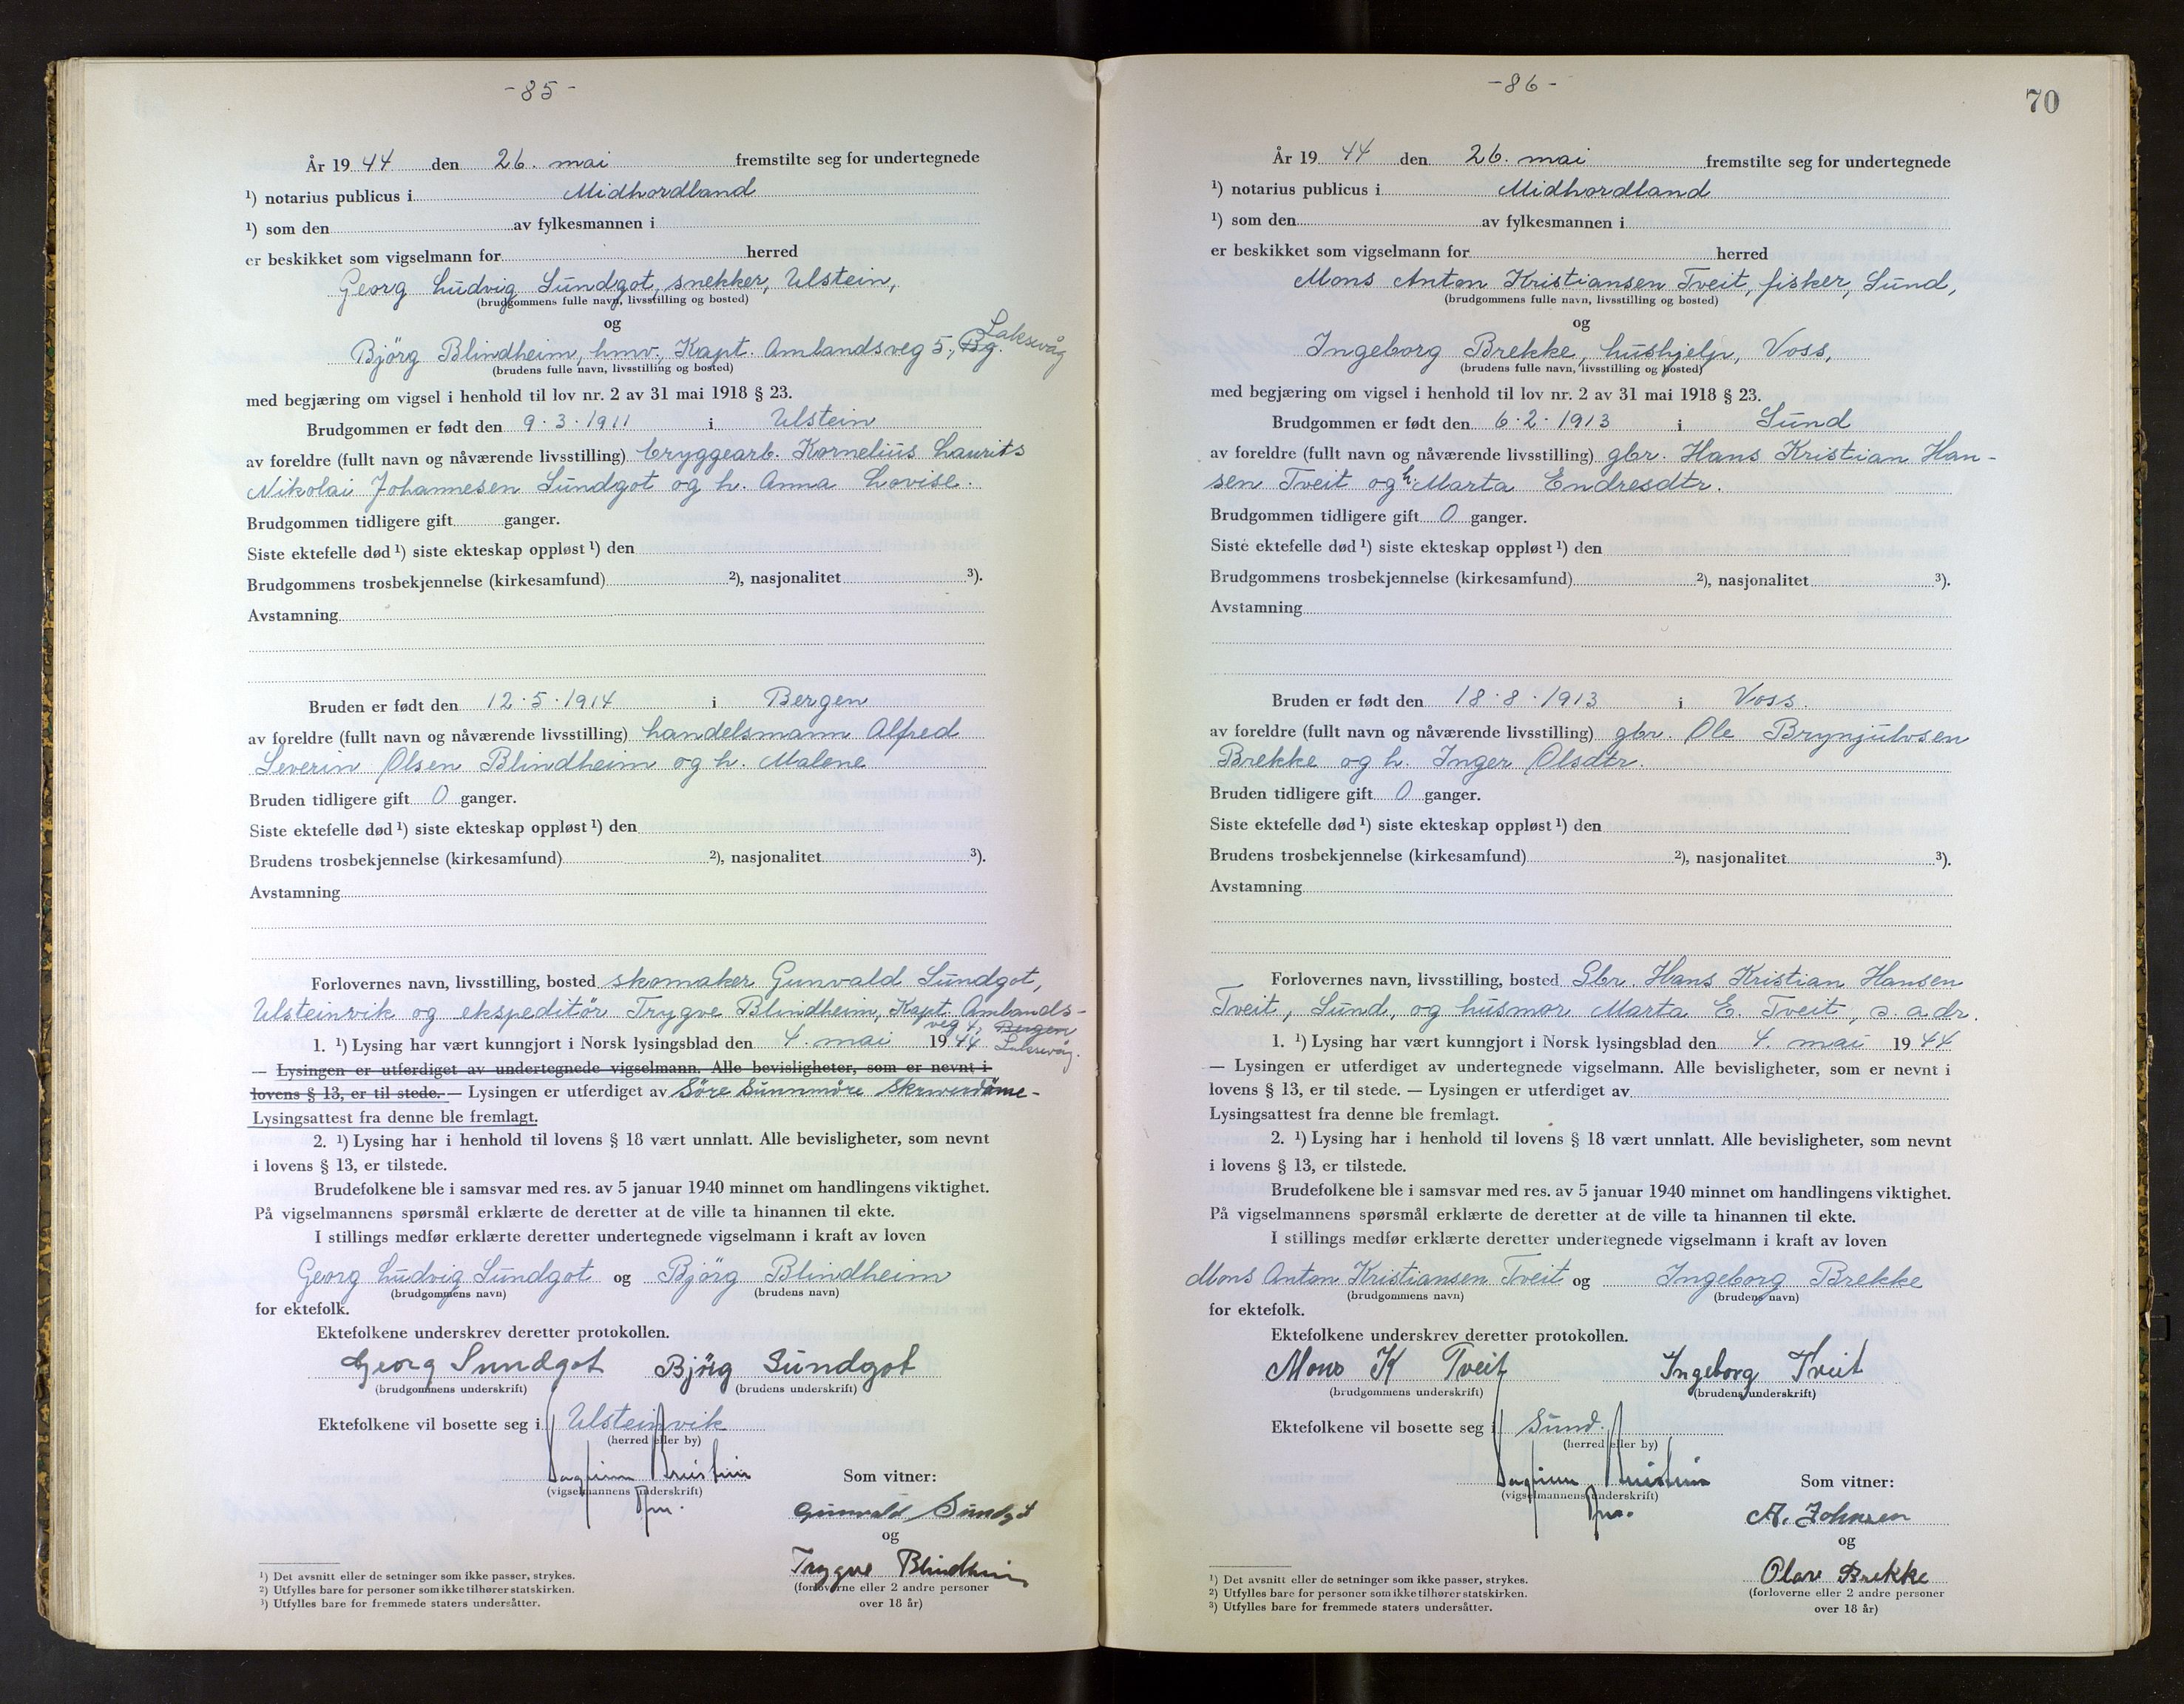 -85-
År 1944 den 26. mai fremstilte seg for undertegnede
¹) notarius publicus i Midhordland
¹) som den av fylkesmannen i
er beskikket som vigselmann for herred
Georg Ludvig Sundgot, snekker, Ulstein,
(brudgommens fulle navn, livsstilling og bosted)
og
Laksevåg
Bjørg Blindheim, hmv., Kapt. Amlandsveg 5, Bg.
(brudens fulle navn, livsstilling og bosted)
med begjæring om vigsel i henhold til lov nr. 2 av 31 mai 1918 § 23.
Brudgommen er født den 9.3.1911 i Ulstein
av foreldre (fullt navn og nåværende livsstilling) bryggearb. Kornelius Laurits
Nikolai Johannesen Sundgot og h. Anna Lovise.
Brudgommen tidligere gift ganger.
Siste ektefelle død ¹) siste ekteskap oppløst ¹) den
Brudgommens trosbekjennelse (kirkesamfund) ²), nasjonalitet ³).
Avstamning
Bruden er født den 12.5.1914 i Bergen
av foreldre (fullt navn og nåværende livsstilling) handelsmann Alfred
Severin Olsen Blindheim og h. Malene
Bruden tidligere gift 0 ganger.
Siste ektefelle død ¹) siste ekteskap oppløst ¹) den
Brudens trosbekjennelse (kirkesamfund) ²), nasjonalitet ³).
Avstamning
Forlovernes navn, livsstilling, bosted skomaker Gunvald Sundgot,
Ulsteinvik og ekspeditör Trygve Blindheim, Kapt. Amlands-
veg 4, Bergen
1. ¹) Lysing har vært kunngjort i Norsk lysingsblad den 4. mai 1944 Laksevåg.
— Lysingen er utferdiget av undertegnede vigselmann. Alle bevisligheter, som er nevnt i
lovens § 13, er til stede. — Lysingen er utferdiget av Söre Sunnmöre Skriverdöme-
Lysingsattest fra denne ble fremlagt.
2. ¹) Lysing har i henhold til lovens § 18 vært unnlatt. Alle bevisligheter, som nevnt
i lovens § 13, er tilstede.
Brudefolkene ble i samsvar med res. av 5 januar 1940 minnet om handlingens viktighet.
På vigselmannens spørsmål erklærte de deretter at de ville ta hinannen til ekte.
I stillings medfør erklærte deretter undertegnede vigselmann i kraft av loven
Georg Ludvig Sundgot og Bjørg Blindheim
(brudgommens navn) (brudens navn)
for ektefolk.
Ektefolkene underskrev deretter protokollen.
Georg Sundgot Bjørg Sundgot
(brudgommens underskrift) (brudens underskrift)
Ektefolkene vil bosette seg i Ulsteinvik
(herred eller by)
(vigselmannens underskrift)
Som vitner:
Gunvald Sundgot
og
Trygve Blindheim
(forloverne eller 2 andre personer
over 18 år)
¹) Det avsnitt eller de setninger som ikke passer, strykes.
²) Utfylles bare for personer som ikke tilhører statskirken.
³) Utfylles bare for fremmede staters undersåtter.
-86-
70
År 1944 den 26. mai fremstilte seg for undertegnede
¹) notarius publicus i Midhordland
¹) som den av fylkesmannen i
er beskikket som vigselmann for herred
Mons Anton Kristiansen Tveit, fisker, Sund,
(brudgommens fulle navn, livsstilling og bosted)
og
Ingeborg Brekke, hushjelp, Voss,
(brudens fulle navn, livsstilling og bosted)
med begjæring om vigsel i henhold til lov nr. 2 av 31 mai 1918 § 23.
Brudgommen er født den 6.2.1913 i Sund
av foreldre (fullt navn og nåværende livsstilling) gbr. Hans Kristian Han-
sen Tveit og h. Marta Endresdtr.
Brudgommen tidligere gift 0 ganger.
Siste ektefelle død ¹) siste ekteskap oppløst ¹) den
Brudgommens trosbekjennelse (kirkesamfund) ²), nasjonalitet ³).
Avstamning
Bruden er født den 18.8.1913 i Voss.
av foreldre (fullt navn og nåværende livsstilling) gbr. Ole Brynjulvsen
Brekke og h. Inger Olsdtr.
Bruden tidligere gift 0 ganger.
Siste ektefelle død ¹) siste ekteskap oppløst ¹) den
Brudens trosbekjennelse (kirkesamfund) ²), nasjonalitet ³).
Avstamning
Forlovernes navn, livsstilling, bosted Gbr. Hans Kristian Hansen
Tveit, Sund, og husmor Marta E. Tveit, s. adr.
1. ¹) Lysing har vært kunngjort i Norsk lysingsblad den 4. mai 1944
— Lysingen er utferdiget av undertegnede vigselmann. Alle bevisligheter, som er nevnt i
lovens § 13, er til stede. — Lysingen er utferdiget av
Lysingsattest fra denne ble fremlagt.
2. ¹) Lysing har i henhold til lovens § 18 vært unnlatt. Alle bevisligheter, som nevnt
i lovens § 13, er tilstede.
Brudefolkene ble i samsvar med res. av 5 januar 1940 minnet om handlingens viktighet.
På vigselmannens spørsmål erklærte de deretter at de ville ta hinannen til ekte.
I stillings medfør erklærte deretter undertegnede vigselmann i kraft av loven
Mons Anton Kristiansen Tveit og Ingeborg Brekke
(brudgommens navn) (brudens navn)
for ektefolk.
Ektefolkene underskrev deretter protokollen.
Mons K Tveit Ingeborg Tveit
(brudgommens underskrift) (brudens underskrift)
Ektefolkene vil bosette seg i Sund.
(herred eller by)
(vigselmannens underskrift)
Som vitner:
A. Johnsen
og
Olav Brekke
(forloverne eller 2 andre personer
over 18 år)
¹) Det avsnitt eller de setninger som ikke passer, strykes.
²) Utfylles bare for personer som ikke tilhører statskirken.
³) Utfylles bare for fremmede staters undersåtter.